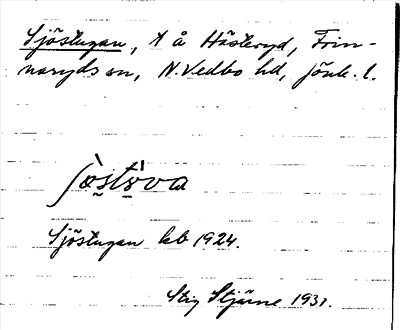 Sjöstugan, t å Hästeryd, Frin-
naryds sn, N. Vedbo hd, Jönk. l.
ʃö̀stòva
Sjöstugan kb 1924.
Stig Stjärne 1931.